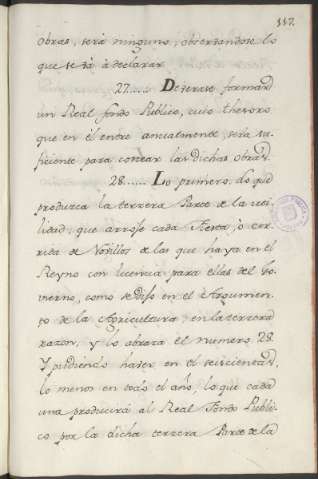 117.
obras, será ninguno, observandose lo
que se vá à declarar.
27...... Deverse formar
un Real fondo Publico, cuio thesoro
que en él entre anualmente, será su-
ficiente para costear las dichas obras.
28...... Lo primero, lo que
produzca la tercera Parte de la uti-
lidad, que arroje cada Fiesta, ò cor-
rida de Novillos de las que haya en el
Reyno con licencia para ellas del Go-
vierno, como se dijo en el Argumen-
to de la Agricultura, en la tercera
razon, y lo abraza el numero 28.
Y pudiendo haver en él seiscientas,
lo menos en todo el año, lo que cada
una producirá al Real Fondo Publi-
co por la dicha tercera Parte de la